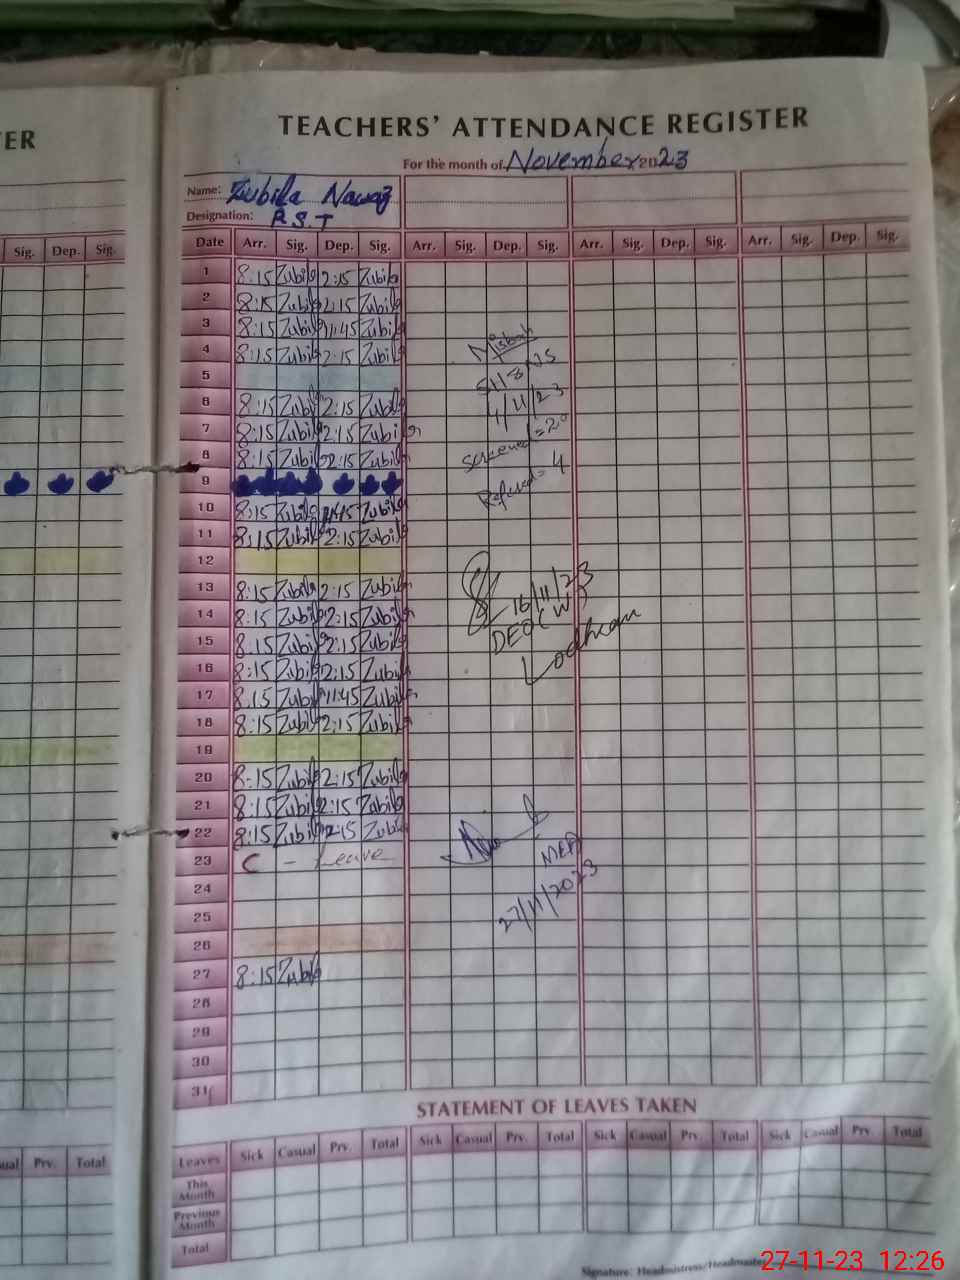 ER
TEACHERS' ATTENDANCE REGISTER
For the month of November 2023
Name: Zubila Nawaz
Designation: P.S.T
Sig. Dep. Sig. Date Arr. Sig. Dep. Sig. Arr. Sig. Dep. Sig. Arr. Sig. Dep. Sig. Arr. Sig. Dep. Sig.
1 8:15 Zubila 2:15 Zubila
2 8:15 Zubila 2:15 Zubila
3 8:15 Zubila 11:45 Zubila
4 8:15 Zubila 2:15 Zubila
5
6 8:15 Zubila 2:15 Zubila
7 8:15 Zubila 2:15 Zubila
8 8:15 Zubila 2:15 Zubila
9
10 8:15 Zubila 11:45 Zubila
11 8:15 Zubila 2:15 Zubila
12
13 8:15 Zubila 2:15 Zubila
14 8:15 Zubila 2:15 Zubila
15 8:15 Zubila 2:15 Zubila
16 8:15 Zubila 2:15 Zubila
17 8:15 Zubila 11:45 Zubila
18 8:15 Zubila 2:15 Zubila
19
20 8:15 Zubila 2:15 Zubila
21 8:15 Zubila 2:15 Zubila
22 8:15 Zubila 2:15 Zubila
23 C - Leave
24
25
26
27 8:15 Zubila
28
29
30
31
Misbah
SH&NS
4/11/23
Screened = 20
Refered = 4
16/11/23
DEO(W)
Lodhran
MEA
27/11/2023
STATEMENT OF LEAVES TAKEN
ual Prv. Total Leaves Sick Casual Prv. Total Sick Casual Prv. Total Sick Casual Prv. Total Sick Casual Prv. Total
This Month
Previous Month
Total
Signature: Headmistress/Headmaster
27-11-23 12:26